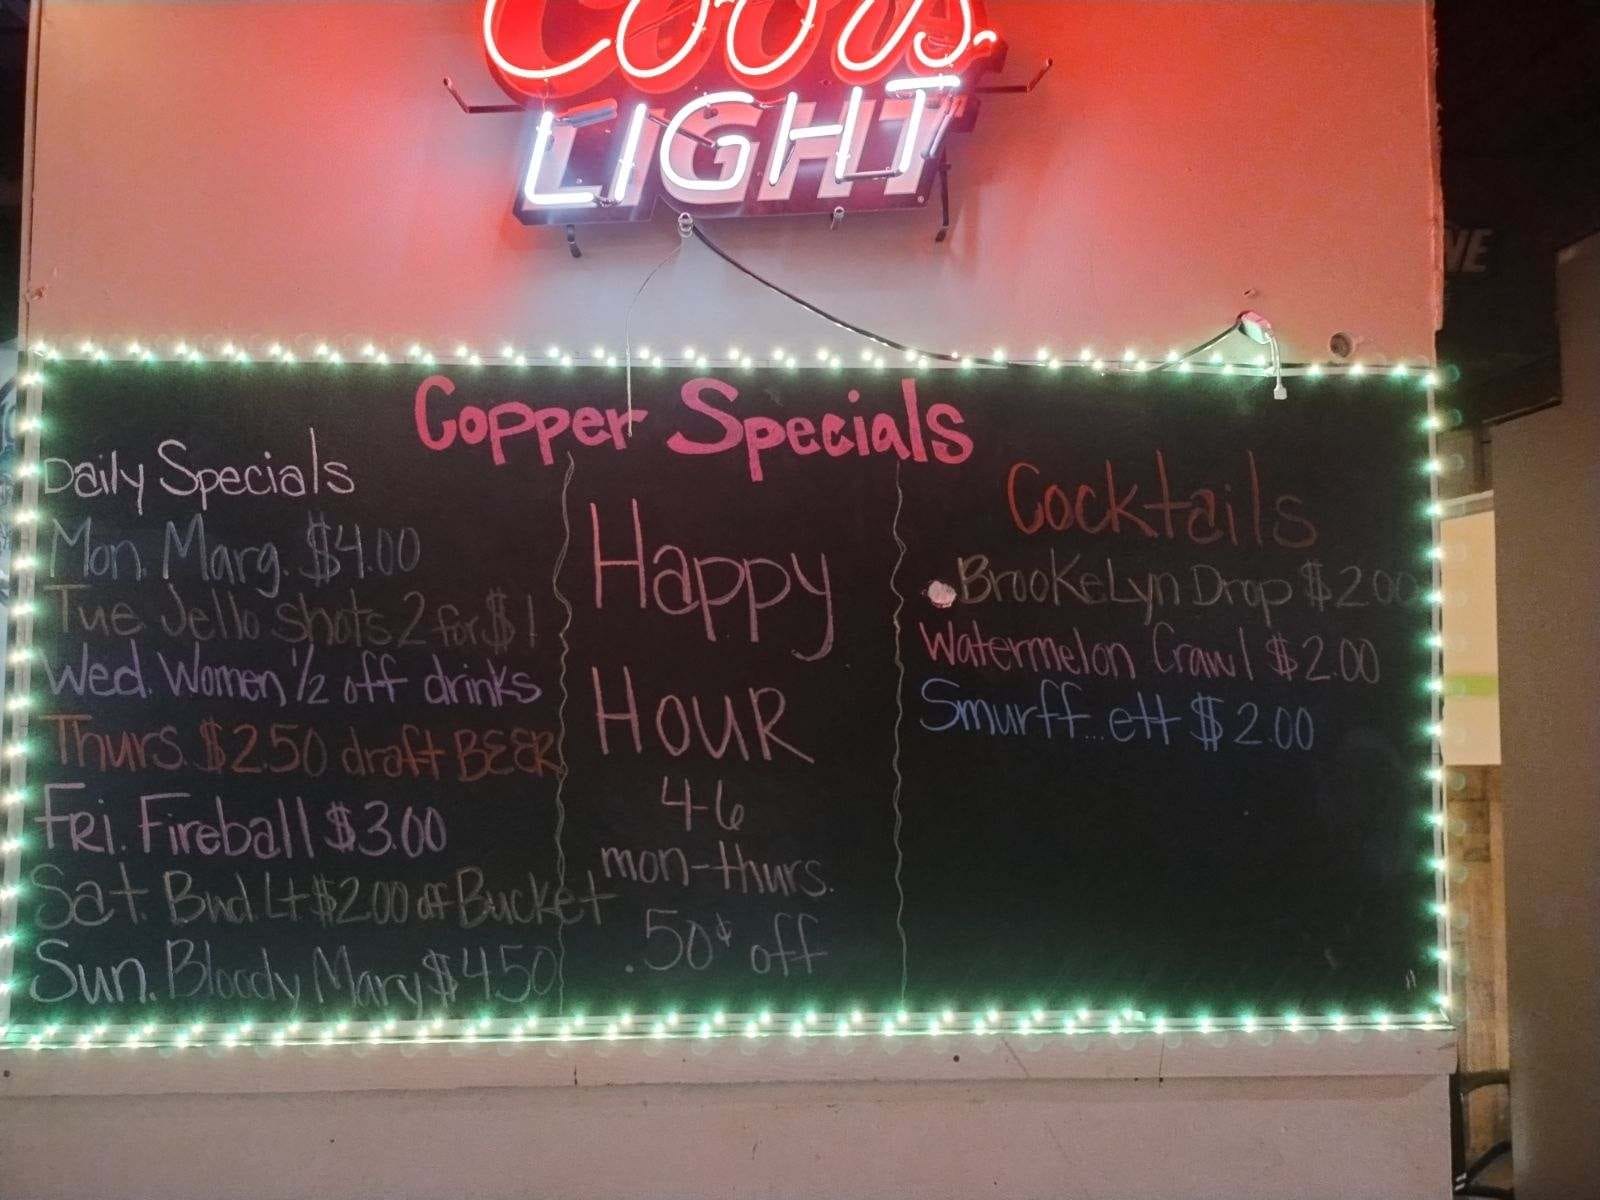 Coors
LIGHT
NE
Copper Specials
Daily Specials
Mon. Marg. $4.00
Tue Jello shots 2 for $1
Wed. Women 1/2 off drinks
Thurs. $2.50 draft BEER
FRi. Fireball $3.00
Sat. Bud Lt $2.00 off Bucket
Sun. Bloody Mary $4.50
Happy
HOUR
4-6
mon-thurs.
.50¢ off
Cocktails
BrooKeLyn Drop $2.00
Watermelon Crawl $2.00
Smurff...ett $2.00